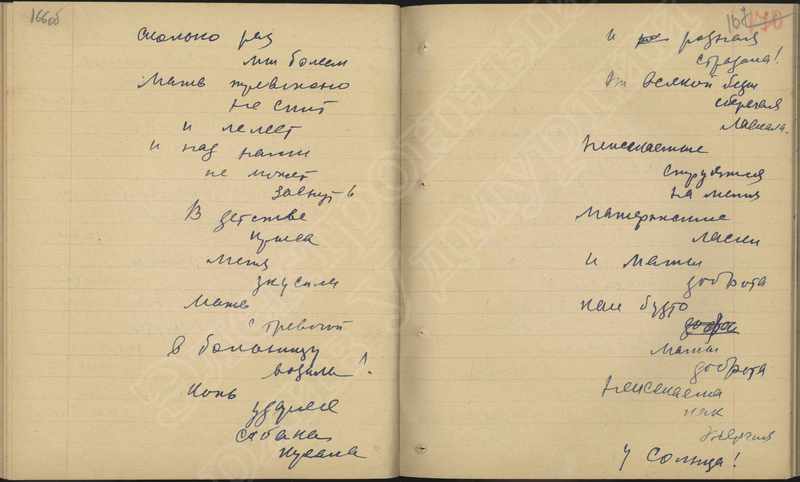 166об
сколько раз
мы болеем
Мать тревожно
не спит
и лелеет
и над нами
не может
заснуть
В детстве
крыса
меня
укусила
Мать
с тревогой
в больницу
возила!
Конь
ударил
собака
кусала
167 170
и родная
страдала!
От всякой беды
сберегая
ласкала.
Неиссякаемые
струятся
на меня
материнские
ласки
и мамы
доброта
как будто
мамы
доброта
Неиссякаема
как
Энергия
у Солнца!